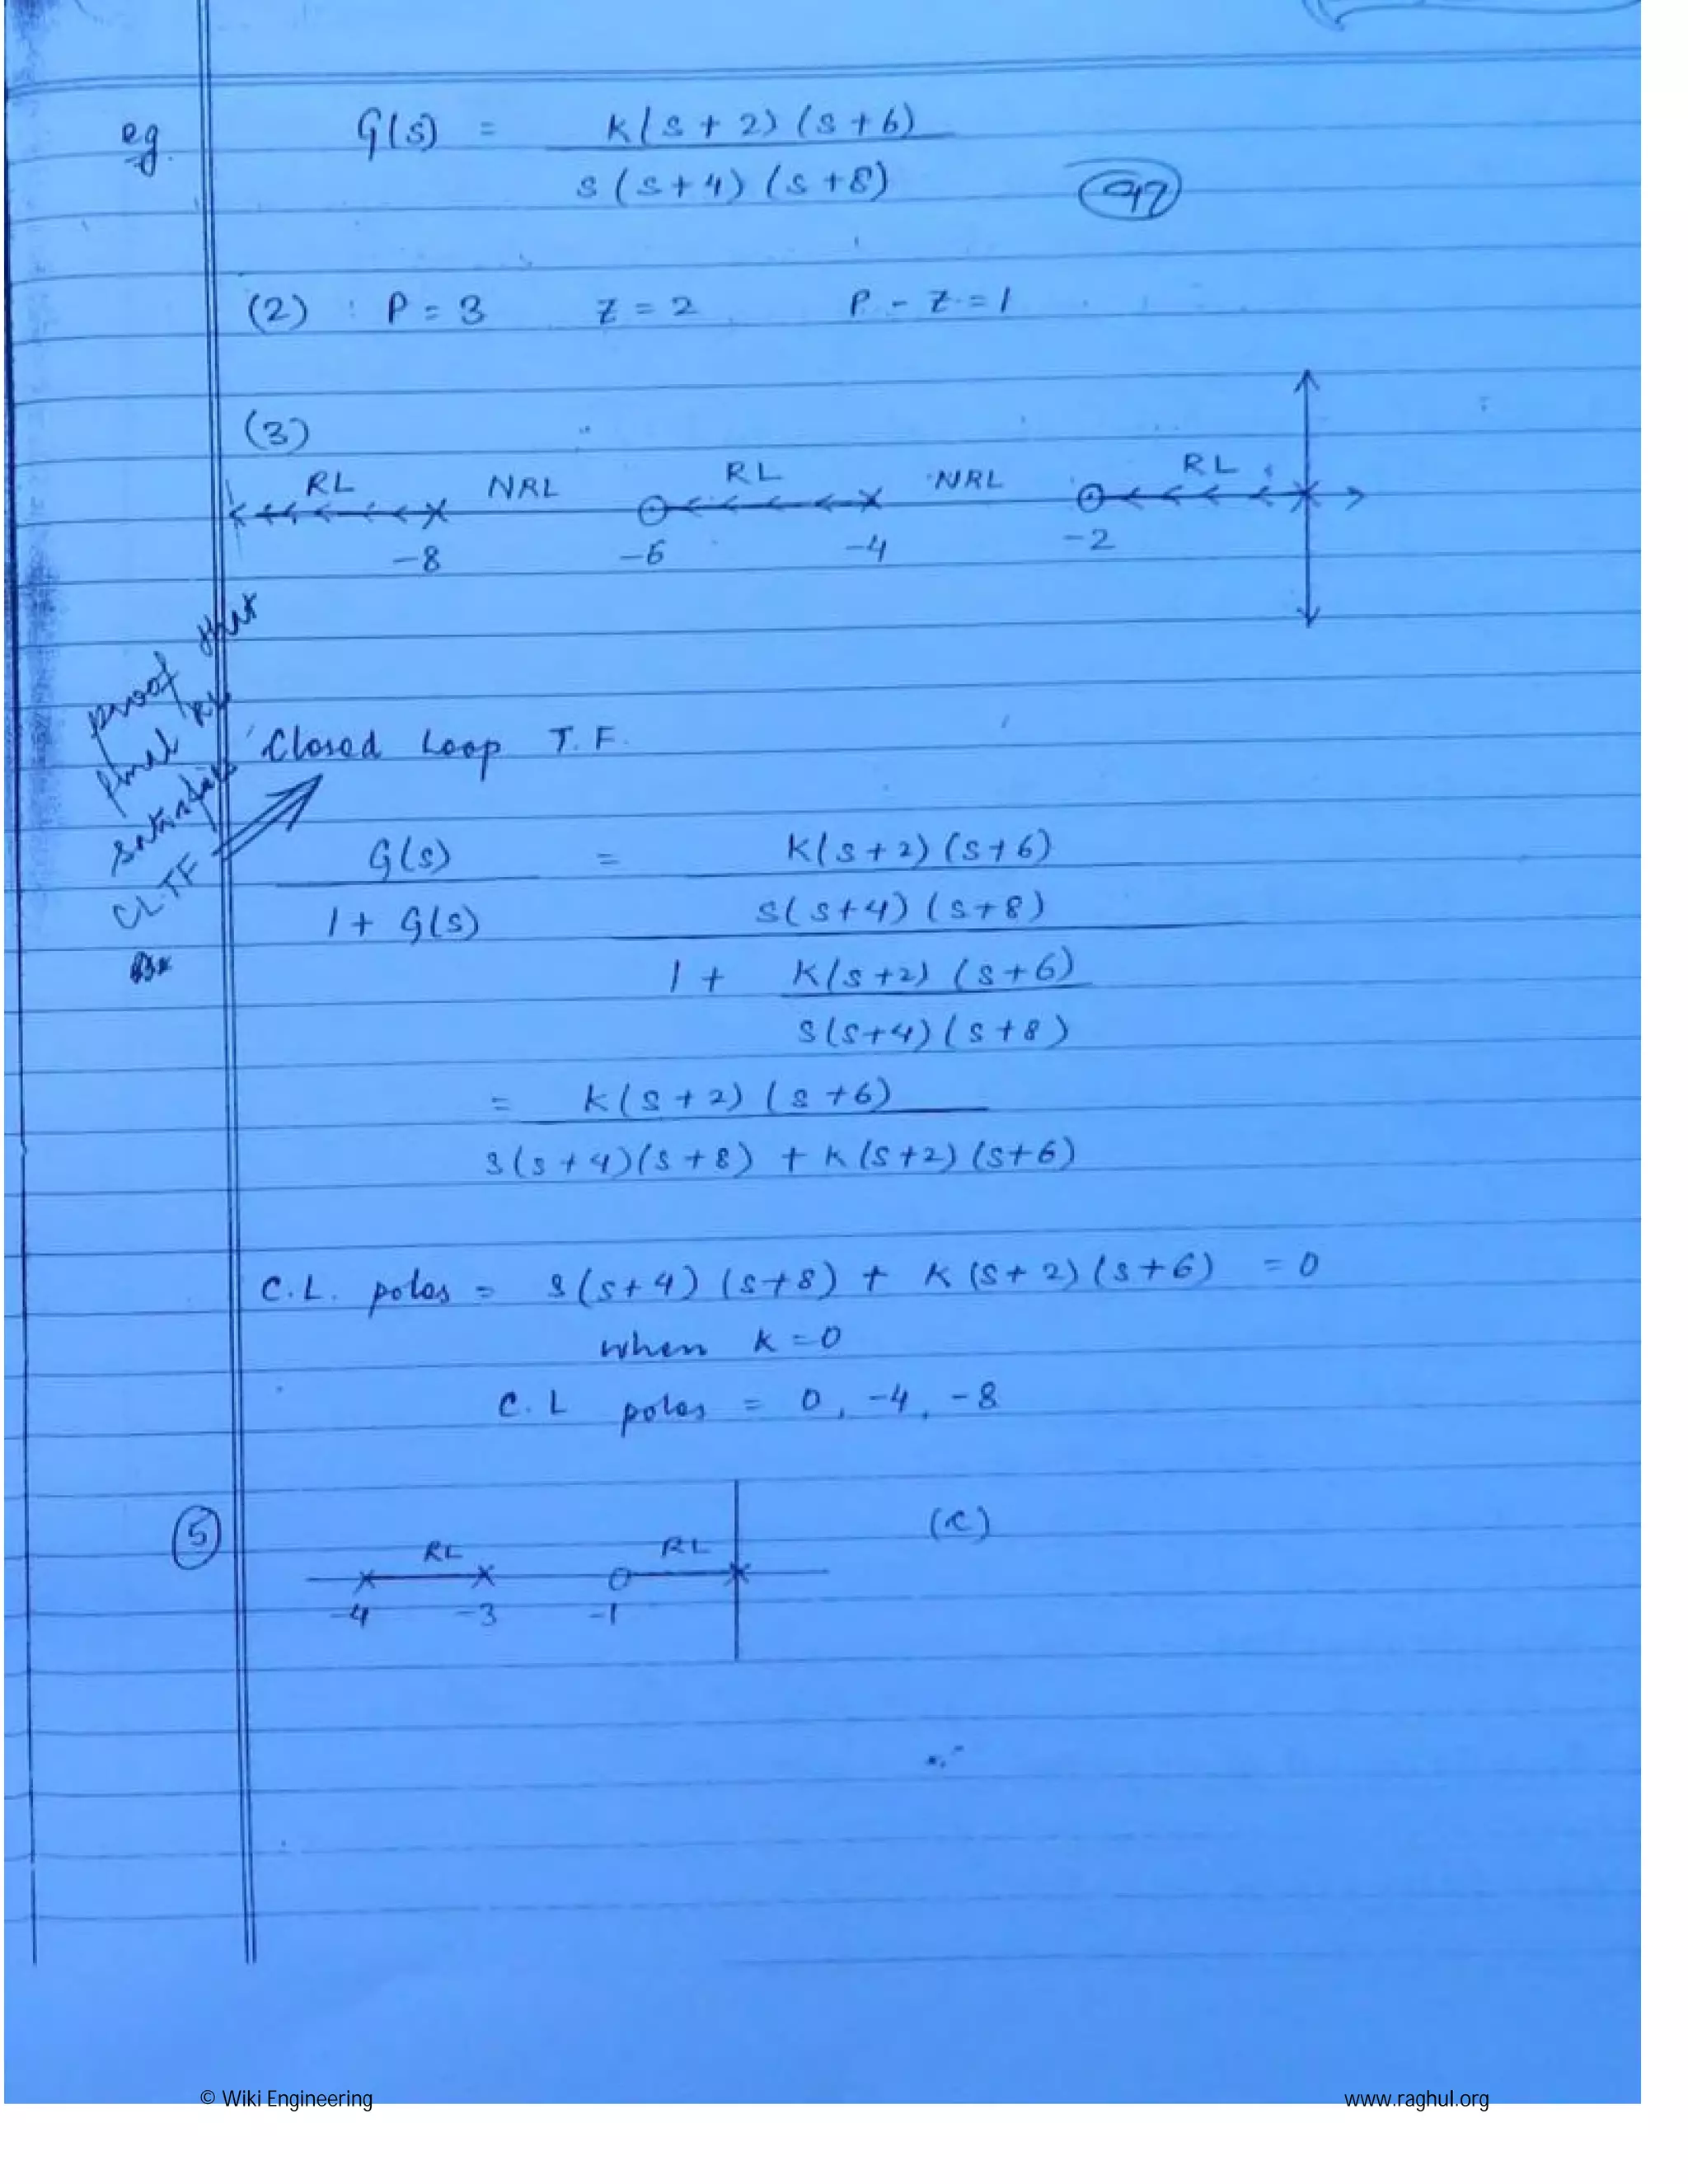 eg. G(s) = K(s+2)(s+6)
s(s+4)(s+8)
97
(2) P = 3 Z = 2 P - Z = 1
(3)
RL NRL RL NRL RL
-8 -6 -4 -2
proof that
final RL
satisfies
CLTF
Closed Loop T.F.
G(s) = K(s+2)(s+6)
1 + G(s) s(s+4)(s+8)
1 + K(s+2)(s+6)
s(s+4)(s+8)
= K(s+2)(s+6)
s(s+4)(s+8) + K(s+2)(s+6)
C.L. poles = s(s+4)(s+8) + K(s+2)(s+6) = 0
when K = 0
C.L poles = 0, -4, -8
5 (c)
RL RL
-4 -3 -1
© Wiki Engineering www.raghul.org